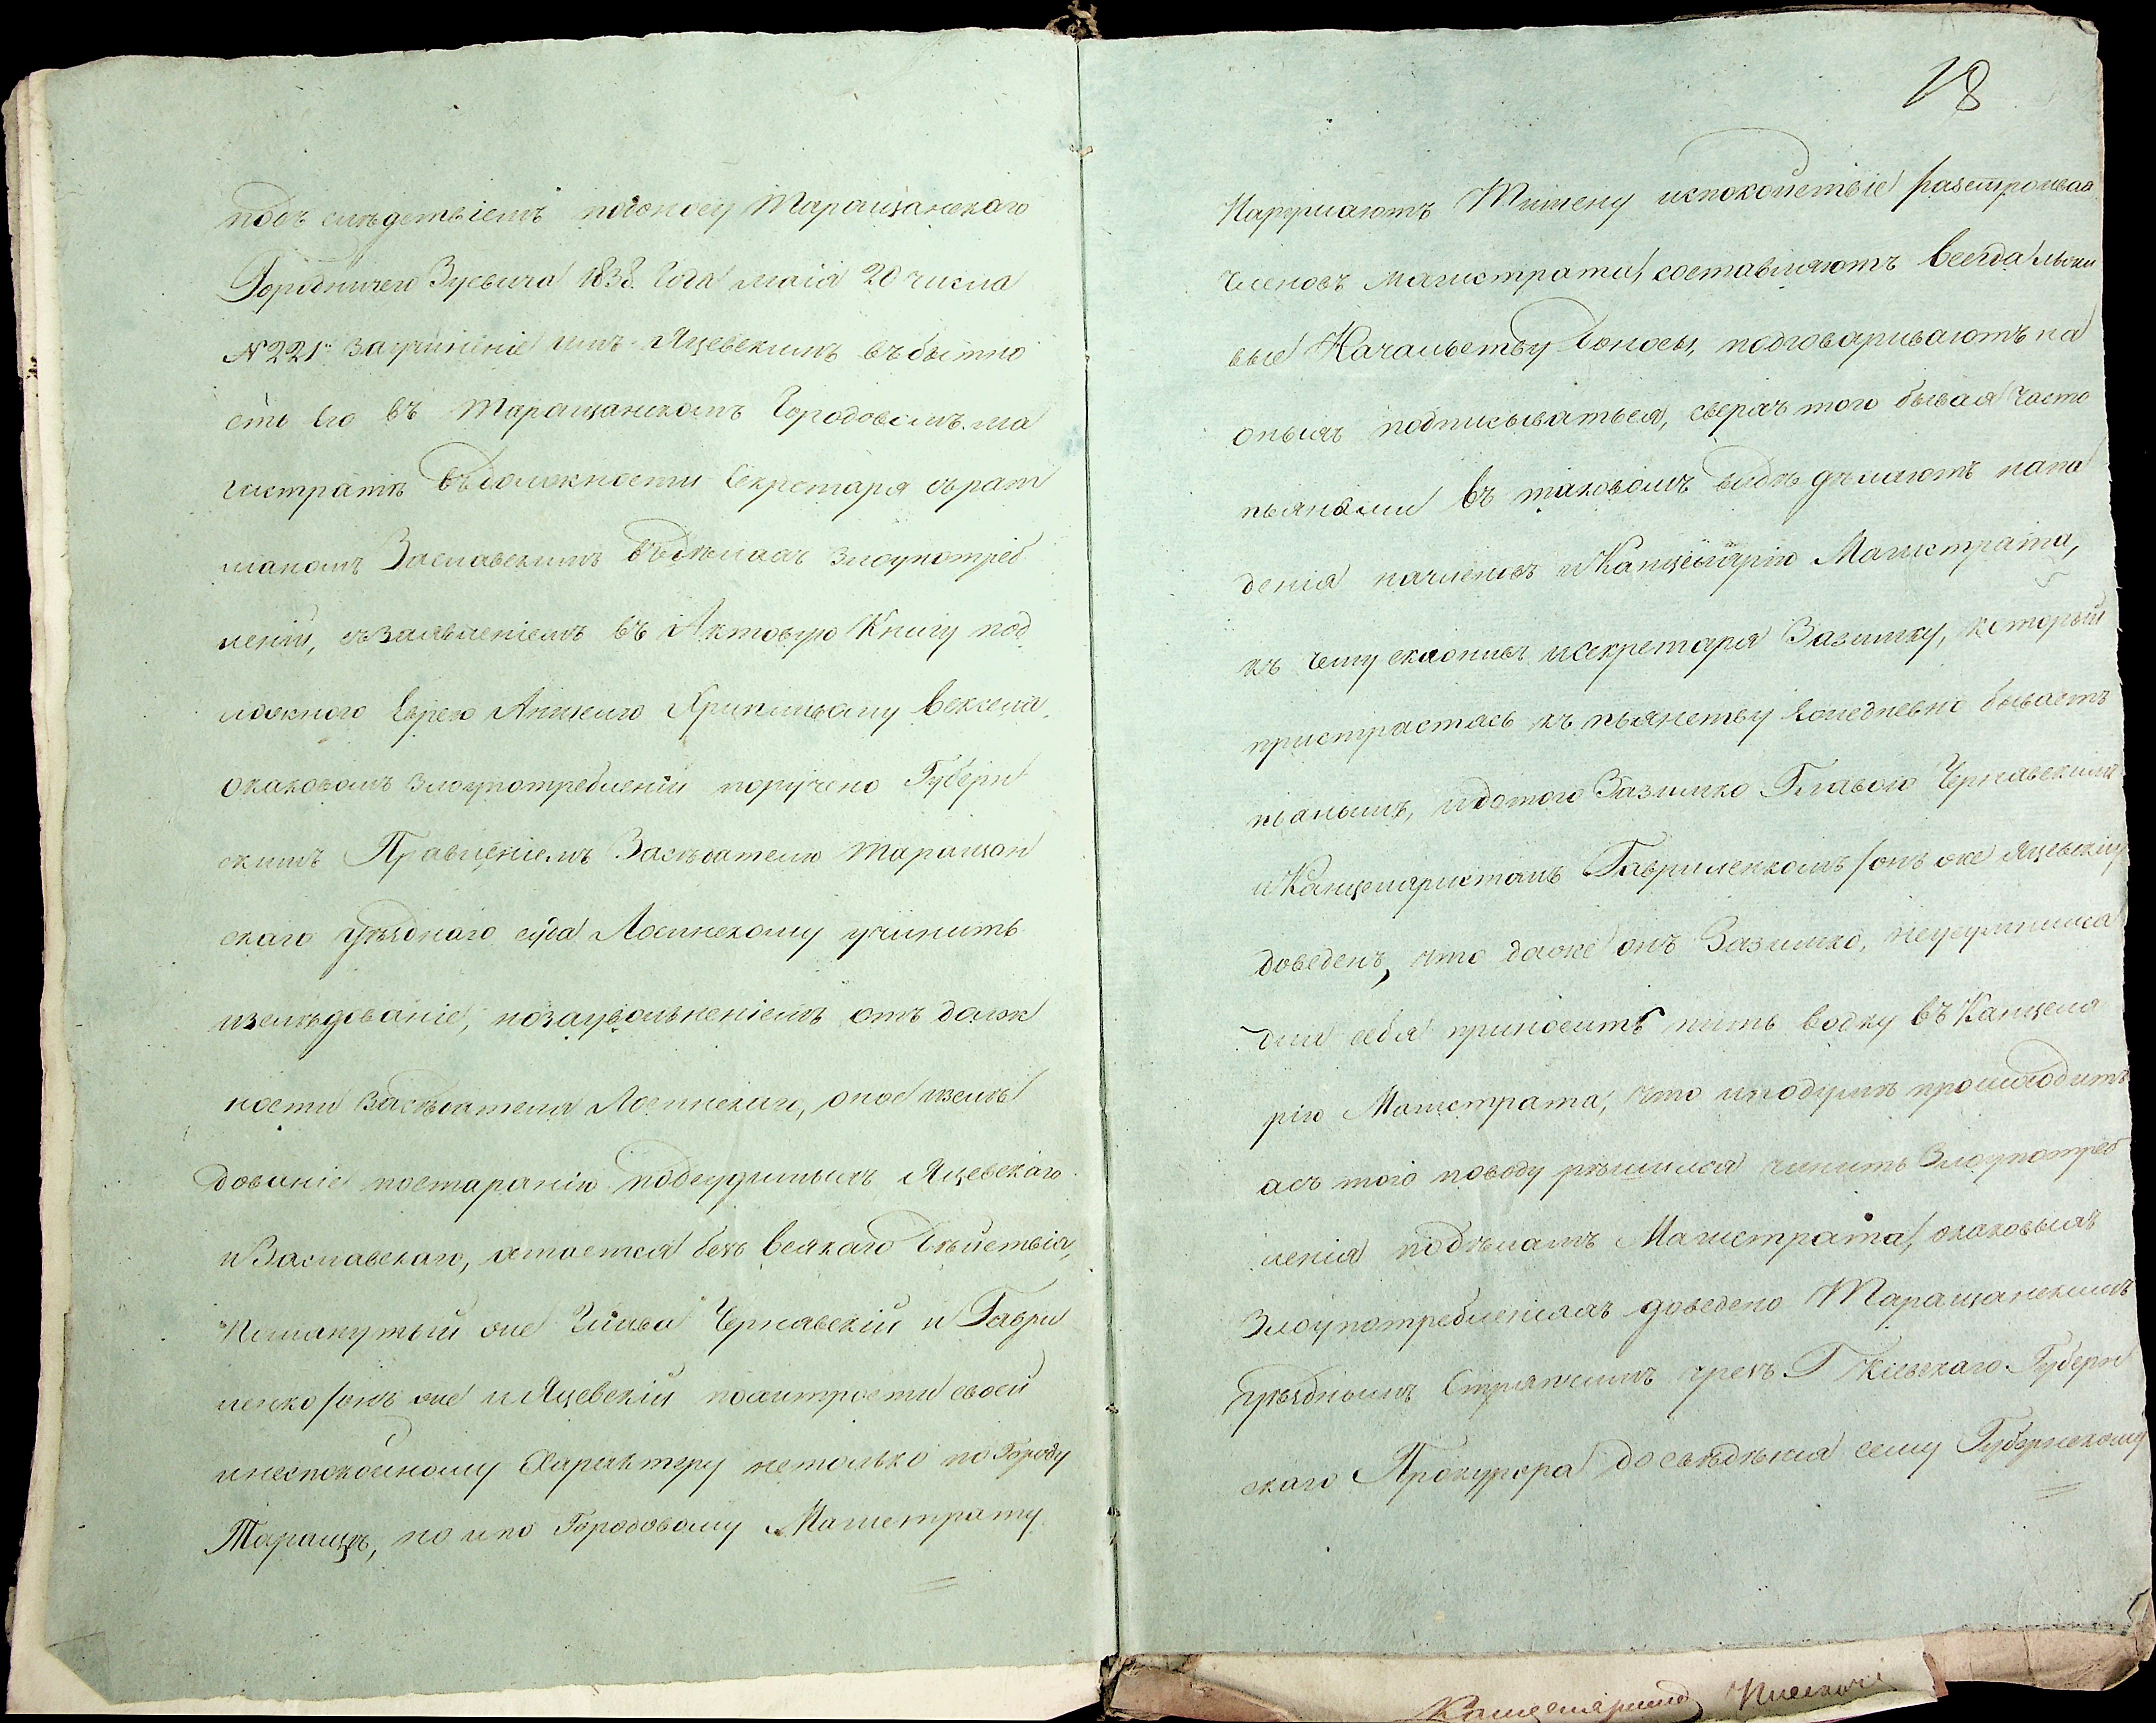 подъ слѣдствіемъ подоносу Таращанскаго
Городничего Зуевича 1838. Года маія 20 числа
№ 221. За учиненіе имъ Яцевскимъ въ бытно
сть его въ Таращанскомъ Городовомъ ма
гистратѣ въ должности Секретаря съ рат
маномъ Заславскимъ въ дѣлахъ злоупотреб
леній, съ заявленіемъ въ Актовую Книгу под
ложного Еврею векселя,
окаковомъ злоупотребленіи поручено Губерн
скимъ Правленіемъ Засѣдателю Таращан
скаго уѣзднаго суда Лосинскому учинить
изслѣдованіе, но за увольненіемъ отъ долж
ности Засѣдателя Лосинскаго, оное изслѣ
дованіе постаранію подсудимыхъ Яцевскаго
и Заславскаго, остается безъ всякаго дѣйствія,
Помянутый же Глава Чернавскій и Гаври
ленко /онъ же и Яцевскій по хитрости своей
и неспокойному Характеру нетолько по Городу
Таращѣ, но и по Городовому Магистрату
18
Нарушаютъ Тишину и спокойствіе разстроивая
Членовъ магистрата, составляютъ всегда лжи
вые Начальству доносы, подговариваютъ на
оныхъ подписываться, сверхъ того бывая часто
пьяными въ таковомъ видѣ дѣлаютъ напа
денія на членовъ и Канцелярію Магистрата,
къ чему склонивъ и секретаря Зазимку, который
пристрастясь къ пьянству ежедневно бываетъ
пьянымъ, и до того Зазимко Главою Чернавскимъ
и Канцеляристомъ Гавриленкомъ /онъ же Яцевскій/
доведенъ, что даже онъ Зазимко, неусумнился
для себя приносить пить водку въ Канцеля
рію Магистрата, что и подумъ происходитъ
а съ того поводу рѣшился чинить Злоупотреб
ленія по дѣламъ Магистрата, о каковыхъ
Злоупотребленіяхъ доведено Таращанскимъ
уѣзднымъ Стряпчимъ чрезъ Г Кіевскаго Губерн
скаго Прокурора до свѣдѣнія сему Губернскому
Канцеляристъ